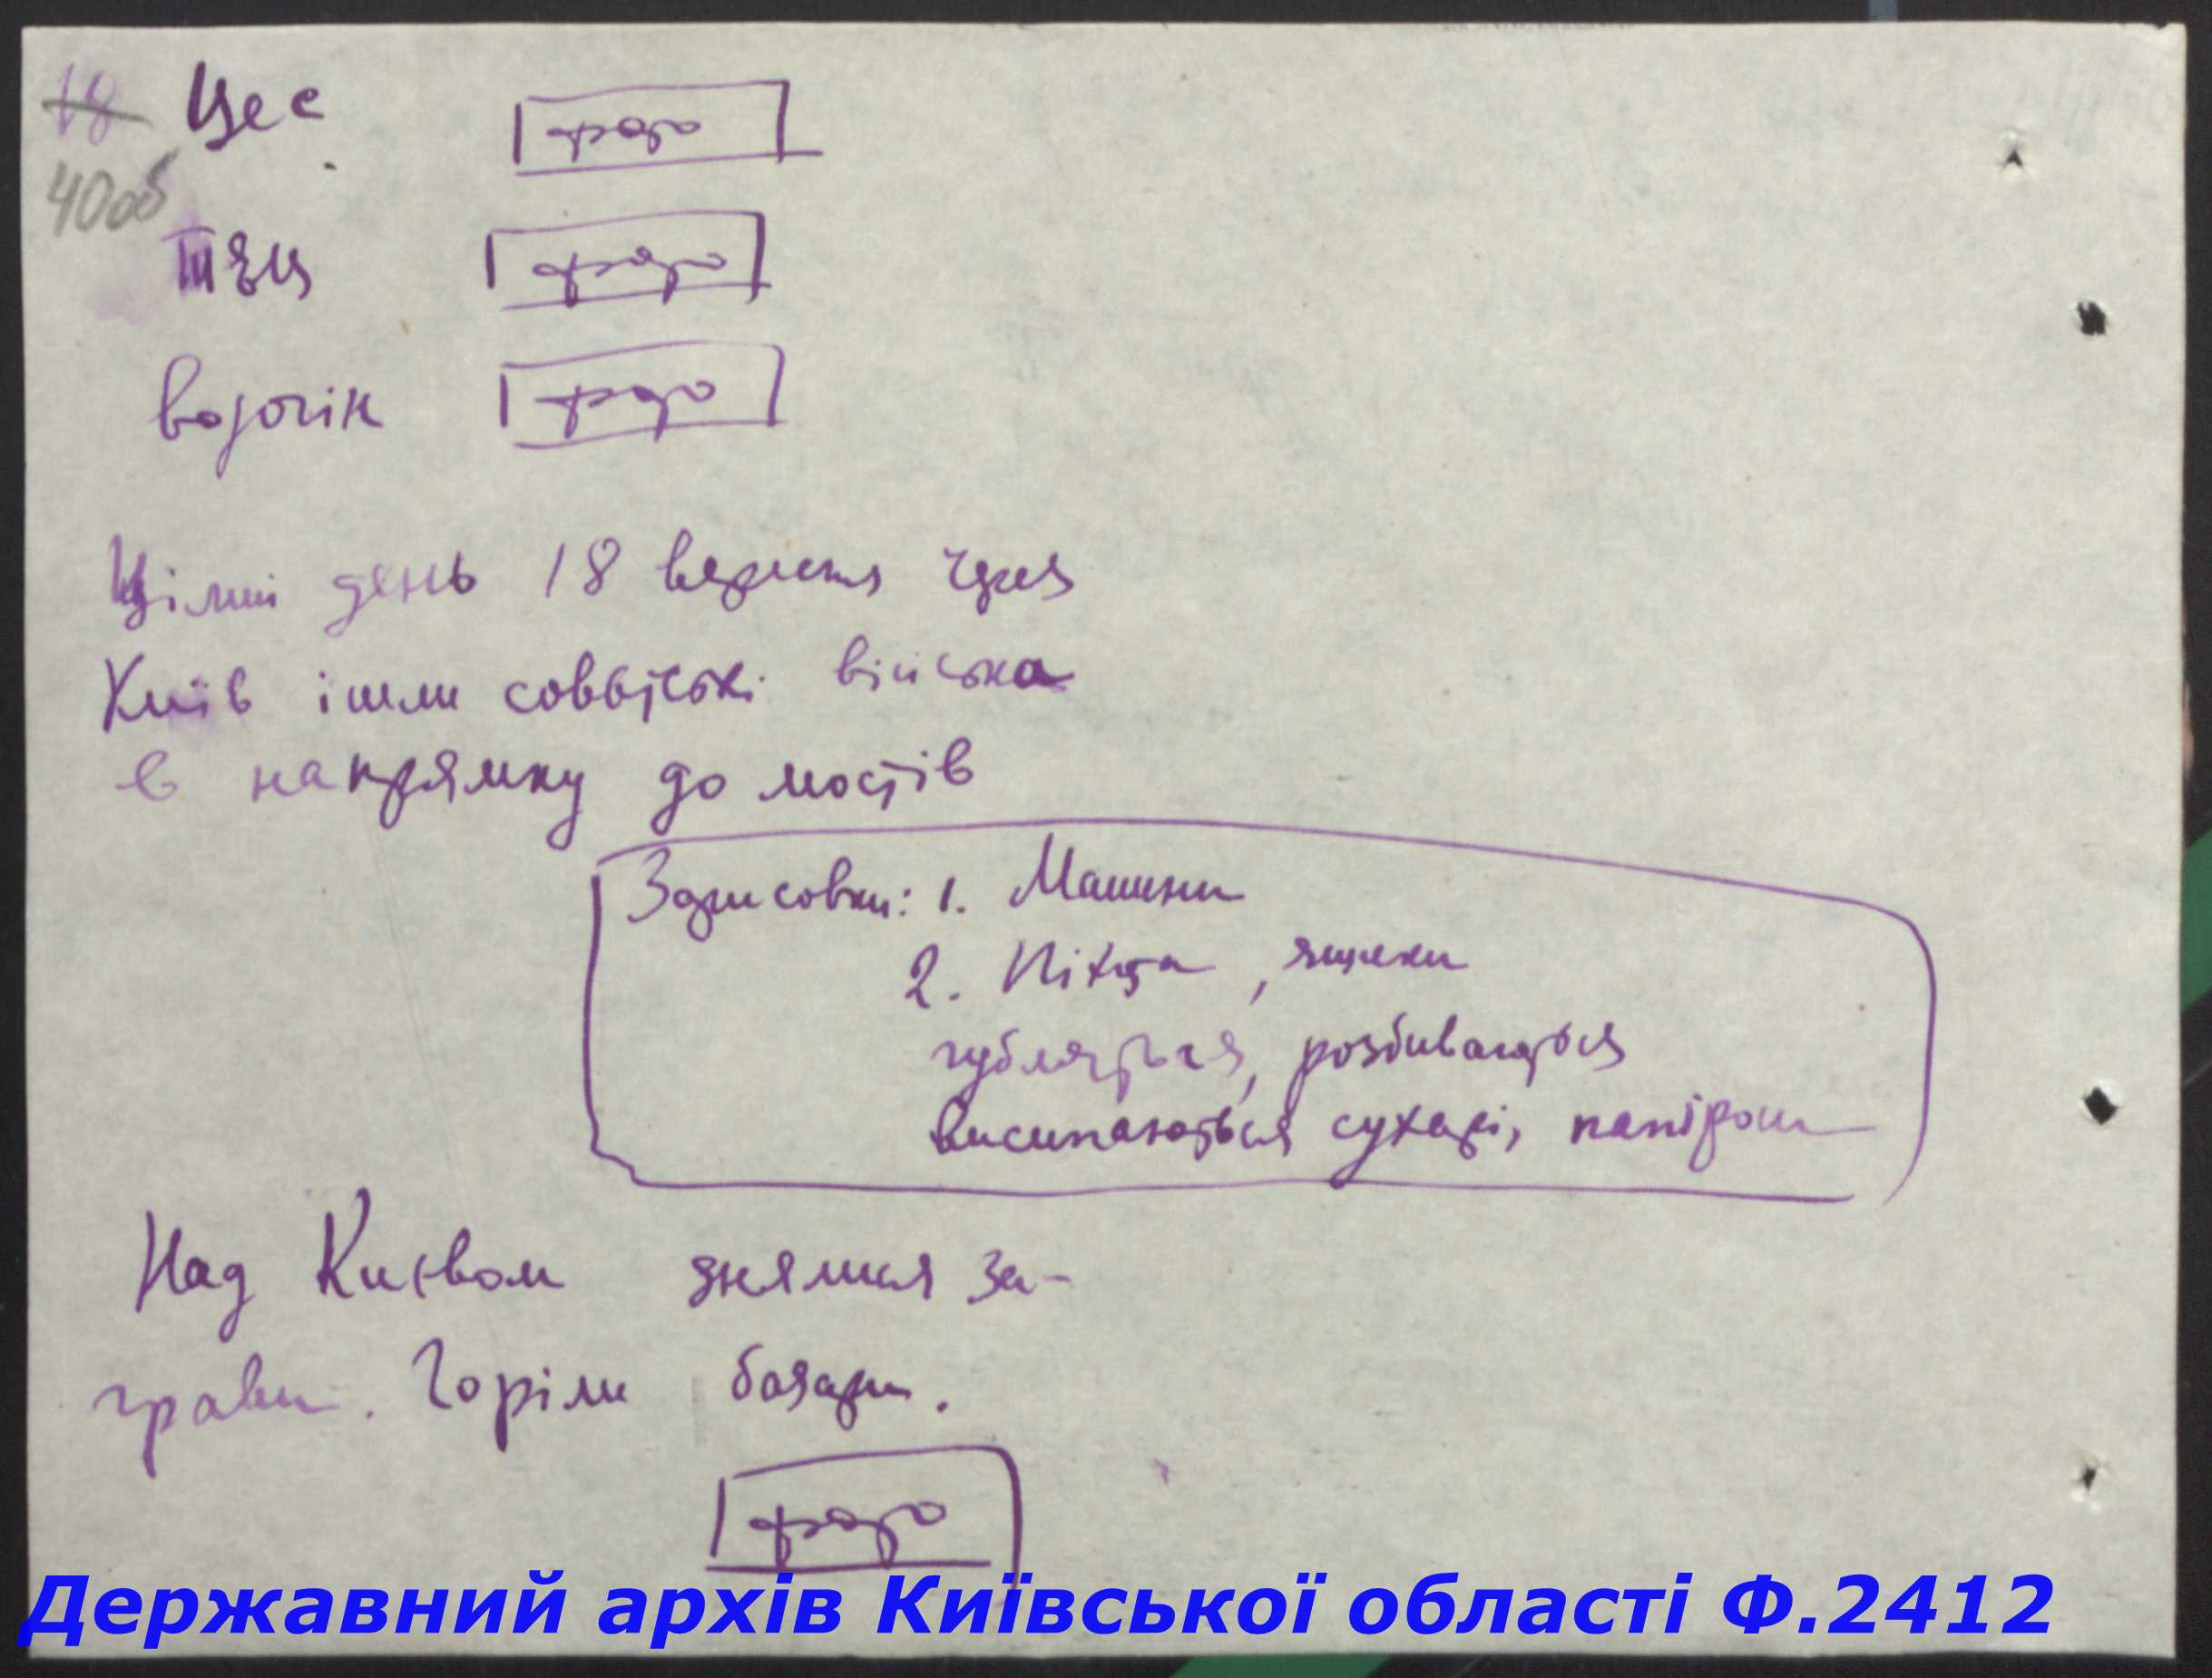 18 Цес фото
40об
ТЕЦ фото
Водогін фото
Цілий день 18 вересня через
Київ ішли советські війська
в напрямку до мостів
Зарисовки: 1. Машини
2. Піхота, ящики
губляться, розбиваються
висипаються сухарі, папіроси
Над Києвом знялися за-
грави. Горіли базари.
фото
Державний архів Київської області Ф.2412